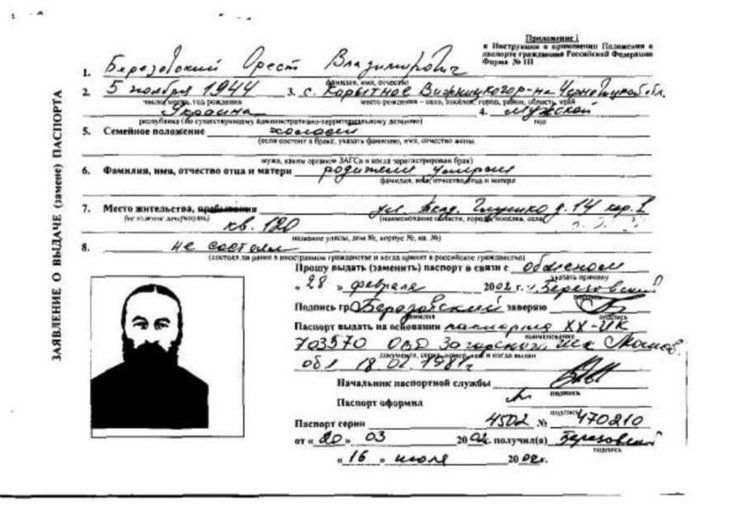 Приложение 1
к Инструкции о применении Положения о
паспорте гражданина Российской Федерации
Форма №
ЗАЯВЛЕНИЕ О ВЫДАЧЕ (замене) ПАСПОРТА
1. Березовский Орест Владимирович
фамилия, имя, отчество
2. 5 ноября 1944 3. с. Корытное Вижницкого р-на Черновицкой обл.
число, месяц, год рождения место рождения – село, посёлок, город, район, область, край
Украина 4. Мужской
республика (по существующему административно-территориальному делению) пол
5. Семейное положение холост
(если состоит в браке, указать фамилию, имя, отчество жены,
мужа, каким органом ЗАГСа и когда зарегистрирован брак)
6. Фамилия, имя, отчество отца и матери родители умерли
фамилия, имя, отчество отца и матери
7. Место жительства, пребывания ул. Глушко д. 14 кор. 1
(не нужное зачеркнуть) (наименование области, города, посёлка, села)
кв. 120
название улицы, дом №, корпус №, кв. №)
8. не состоял
(состоял ли ранее в иностранном гражданстве и когда принят в российское гражданство)
Прошу выдать (заменить) паспорт в связи с обменом
указать причину
« 28 » февраля 2002 г. Березовский
Подпись гр. Березовский заверяю
фамилия подпись
Паспорт выдать на основании паспорта XX-ИК
наименование
703570 ОВД Загорского
документа, серия, номер, кем и когда выдан
обл 18.02.1981г
Начальник паспортной службы
подпись
Паспорт оформил
подпись
Паспорт серии 4502 № 470210
от « 20 » 03 2002г. получил(а) Березовский
подпись
« 16 » июля 2002г.